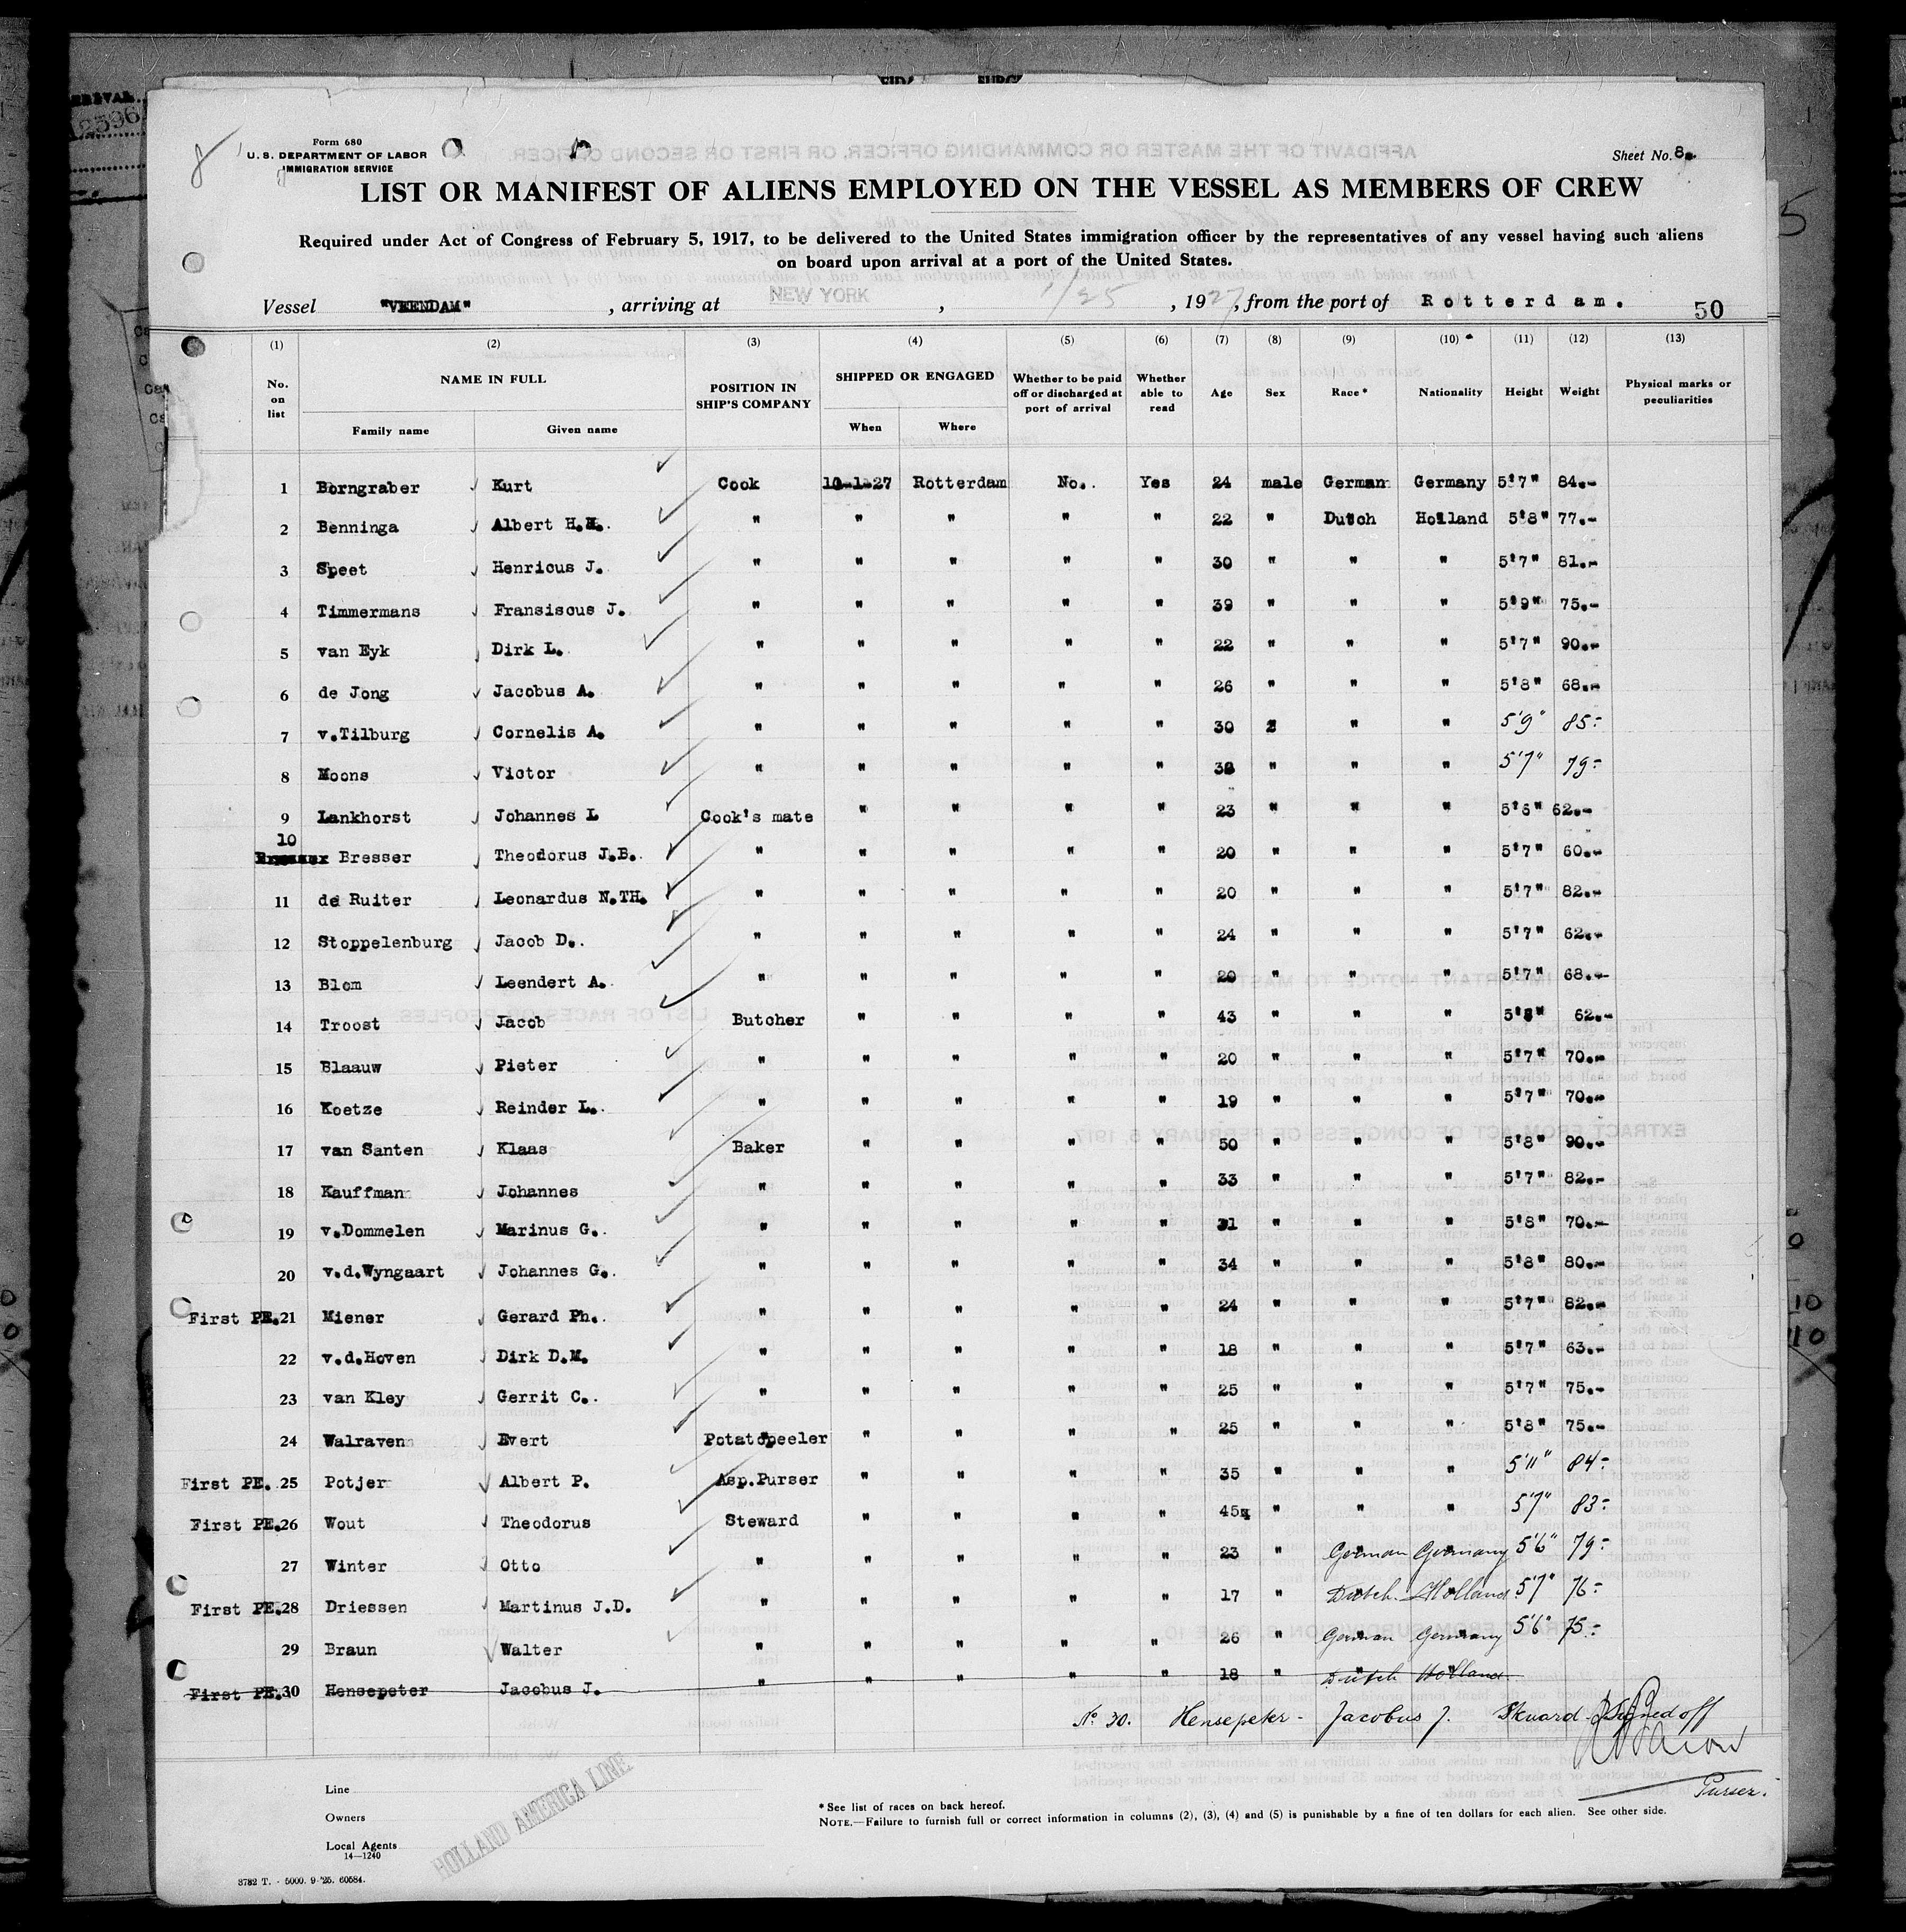 Form 680
U. S. DEPARTMENT OF LABOR
IMMIGRATION SERVICE
Sheet No. 8
LIST OR MANIFEST OF ALIENS EMPLOYED ON THE VESSEL AS MEMBERS OF CREW
Required under Act of Congress of February 5, 1917, to be delivered to the United States immigration officer by the representatives of any vessel having such aliens
on board upon arrival at a port of the United States.
Vessel "VEENDAM" , arriving at NEW YORK , 1/25 , 1927, from the port of Rotterdam. 50
(1) (2) (3) (4) (5) (6) (7) (8) (9) (10) (11) (12) (13)
No. on list NAME IN FULL Family name Given name POSITION IN SHIP'S COMPANY SHIPPED OR ENGAGED When Where Whether to be paid off or discharged at port of arrival Whether able to read Age Sex Race* Nationality Height Weight Physical marks or peculiarities
1 Borngraber Kurt Cook 10-1-27 Rotterdam No. Yes 24 male German Germany 5'7" 84.-
2 Benninga Albert H.H. " " " " " 22 " Dutch Holland 5'8" 77.-
3 Speet Henricus J. " " " " " 30 " " " 5'7" 81.-
4 Timmermans Fransiscus J. " " " " " 39 " " " 5'9" 75.-
5 van Eyk Dirk L. " " " " " 22 " " " 5'7" 90.-
6 de Jong Jacobus A. " " " " " 26 " " " 5'8" 68.-
7 v.Tilburg Cornelis A. " " " " " 30 2 " " 5'9" 85-
8 Moons Victor " " " " " " " " 5'7" 79-
9 Lankhorst Johannes L Cook's mate " " " " 23 " " " 62.-
10 Bresser Theodorus J.B. " " " " " 20 " " " 5'7" 60.-
11 de Ruiter Leonardus N.TH. " " " " " 20 " " " 5'7" 82.-
12 Stoppelenburg Jacob D. " " " " " 24 " " " 5'7" 62.-
13 Blom Leendert A. " " " " " 20 " " " 5'7" 68.-
14 Troost Jacob Butcher " " " " 43 " " " 5'8" 62.-
15 Blaauw Pieter " " " " " 20 " " " 5'7" 70.-
16 Koetze Reinder L. " " " " " 19 " " " 5'7" 70.-
17 van Santen Klaas Baker " " " " 50 " " " 5'8" 90.-
18 Kauffman Johannes " " " " " 33 " " " 5'7" 82.-
19 v.Dommelen Marinus G. " " " " " 31 " " " 5'8" 70.-
20 v.d.Wyngaart Johannes G. " " " " " 34 " " " 5'8" 80.-
First PE. 21 Miener Gerard Ph. " " " " " 24 " " " 5'7" 82.-
22 v.d.Hoven Dirk D.M. " " " " " 18 " " " 5'7" 63.-
23 van Kley Gerrit C. " " " " " 25 " " " 5'7" 75.-
24 Walraven Evert Potatopeeler " " " " 25 " " " 5'8" 75.-
First PE. 25 Potjer Albert P. Asp.Purser " " " " 35 " " " 5'11" 84-
First PE. 26 Wout Theodorus Steward " " " " 45 " " " 5'7" 83-
27 Winter Otto " " " " " 23 " German Germany 5'6" 79-
First PE. 28 Driessen Martinus J.D. " " " " " 17 " Dutch Holland 5'7" 76-
29 Braun Walter " " " " " 26 " German Germany 5'6" 75-
First PE. 30 Hensepeter Jacobus J. " " " " " 18 " Dutch Holland
No. 30. Hensepeter - Jacobus J. Stuard - Signed off
Purser.
Line
Owners
Local Agents
14—1240
HOLLAND AMERICA LINE
* See list of races on back hereof.
NOTE.—Failure to furnish full or correct information in columns (2), (3), (4) and (5) is punishable by a fine of ten dollars for each alien. See other side.
3782 T. - 5000. 9-'25. 60584.